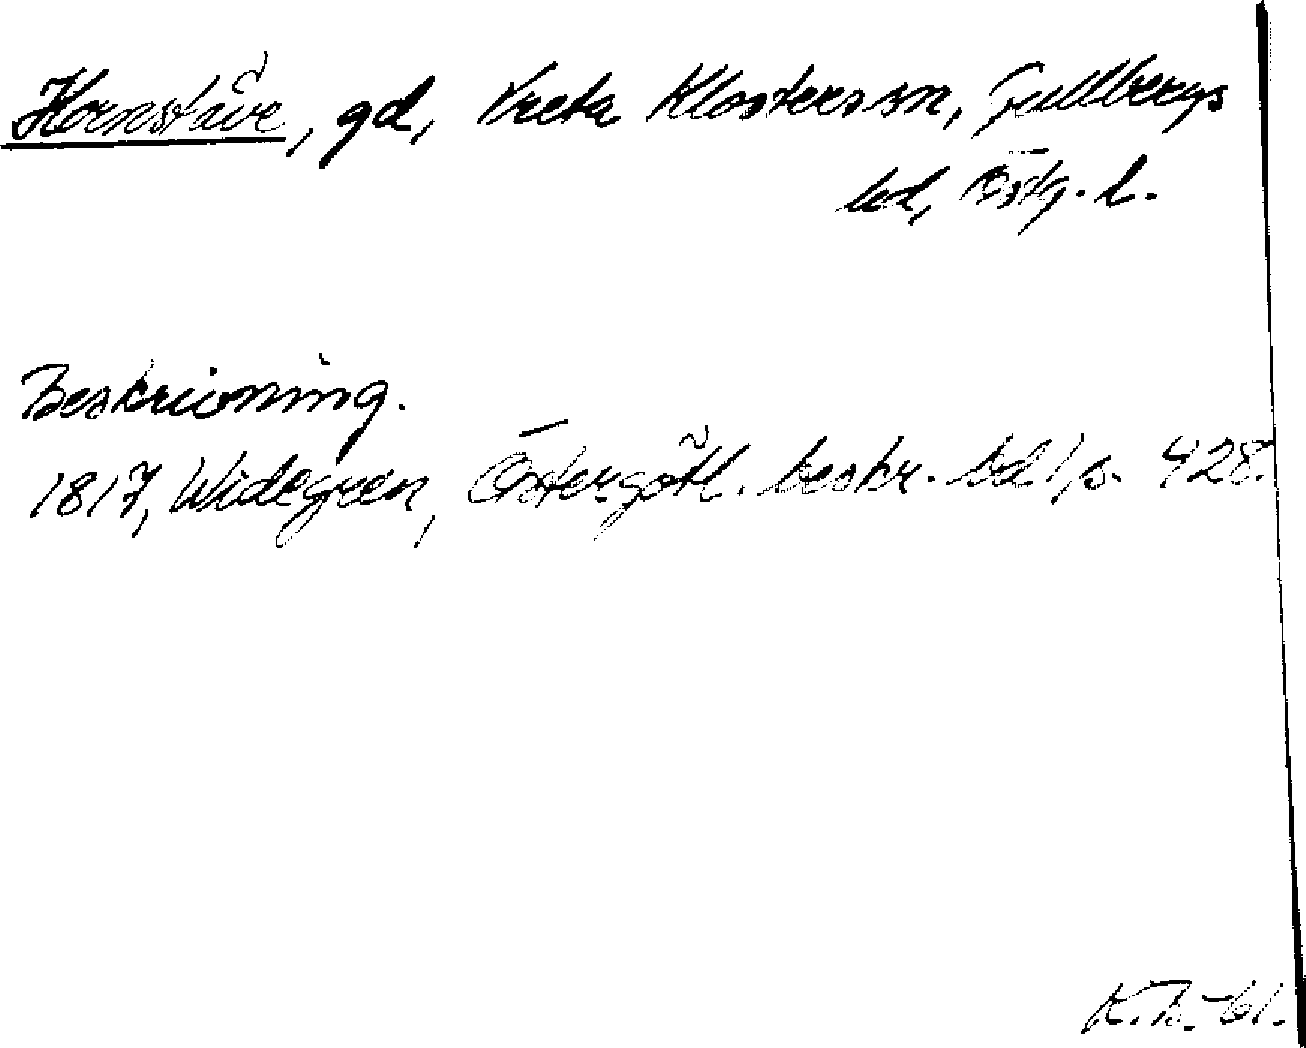 Hornstäve, gd, Vreta Klosters sn, Gullbergs
hd, Östg. l.
Beskrivning.
1817, Widegren, Östergötl. beskr. bd 1, s. 428.
K.B. -61.